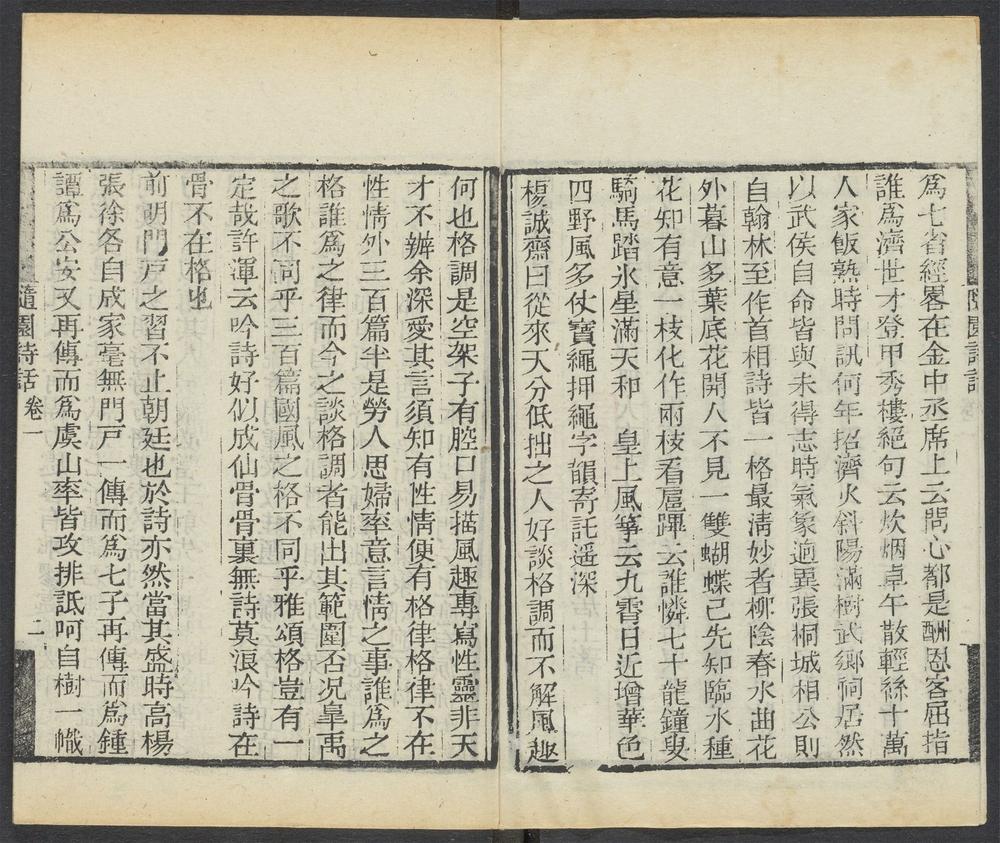 隨園詩話
爲七省經畧在金中丞席上云問心都是酬恩客屈指
誰爲濟世才登甲秀樓絕句云炊烟卓午散輕絲十萬
人家飯熟時問訊何年招濟火斜陽滿樹武鄉祠居然
以武侯自命皆與未得志時氣象逈異張桐城相公則
自翰林至作首相詩皆一格最清妙者柳陰春水曲花
外暮山多葉底花開人不見一雙蝴蝶已先知臨水種
花知有意一枝化作兩枝看扈蹕云誰憐七十龍鐘叟
騎馬踏氷星滿天和　皇上風箏云九霄日近增華色
四野風多仗寶繩押繩字韻寄託遥深
楊誠齋曰從來天分低拙之人好談格調而不解風趣
何也格調是空架子有腔口易描風趣專寫性靈非天
才不辦余深愛其言須知有性情便有格律格律不在
性情外三百篇半是勞人思婦率意言情之事誰爲之
格誰爲之律而今之談格調者能出其範圍否况皐禹
之歌不同乎三百篇國風之格不同乎雅頌格豈有一
定哉許渾云吟詩好似成仙骨骨裏無詩莫浪吟詩在
骨不在格也
前明門戸之習不止朝廷也於詩亦然當其盛時高楊
張徐各自成家毫無門戸一傳而爲七子再傳而爲鍾
譚爲公安又再傳而爲虞山率皆攻排詆呵自樹一幟
隨園詩話　卷一　二